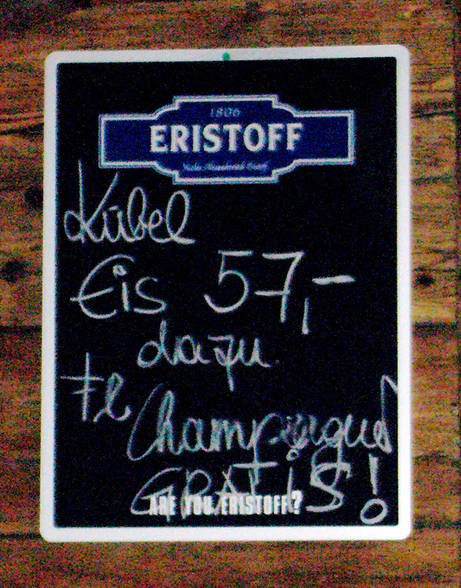 1806
ERISTOFF
Kübel
Eis 57,-
dazu
Fl Champagner
GRATIS!
ARE YOU ERISTOFF?